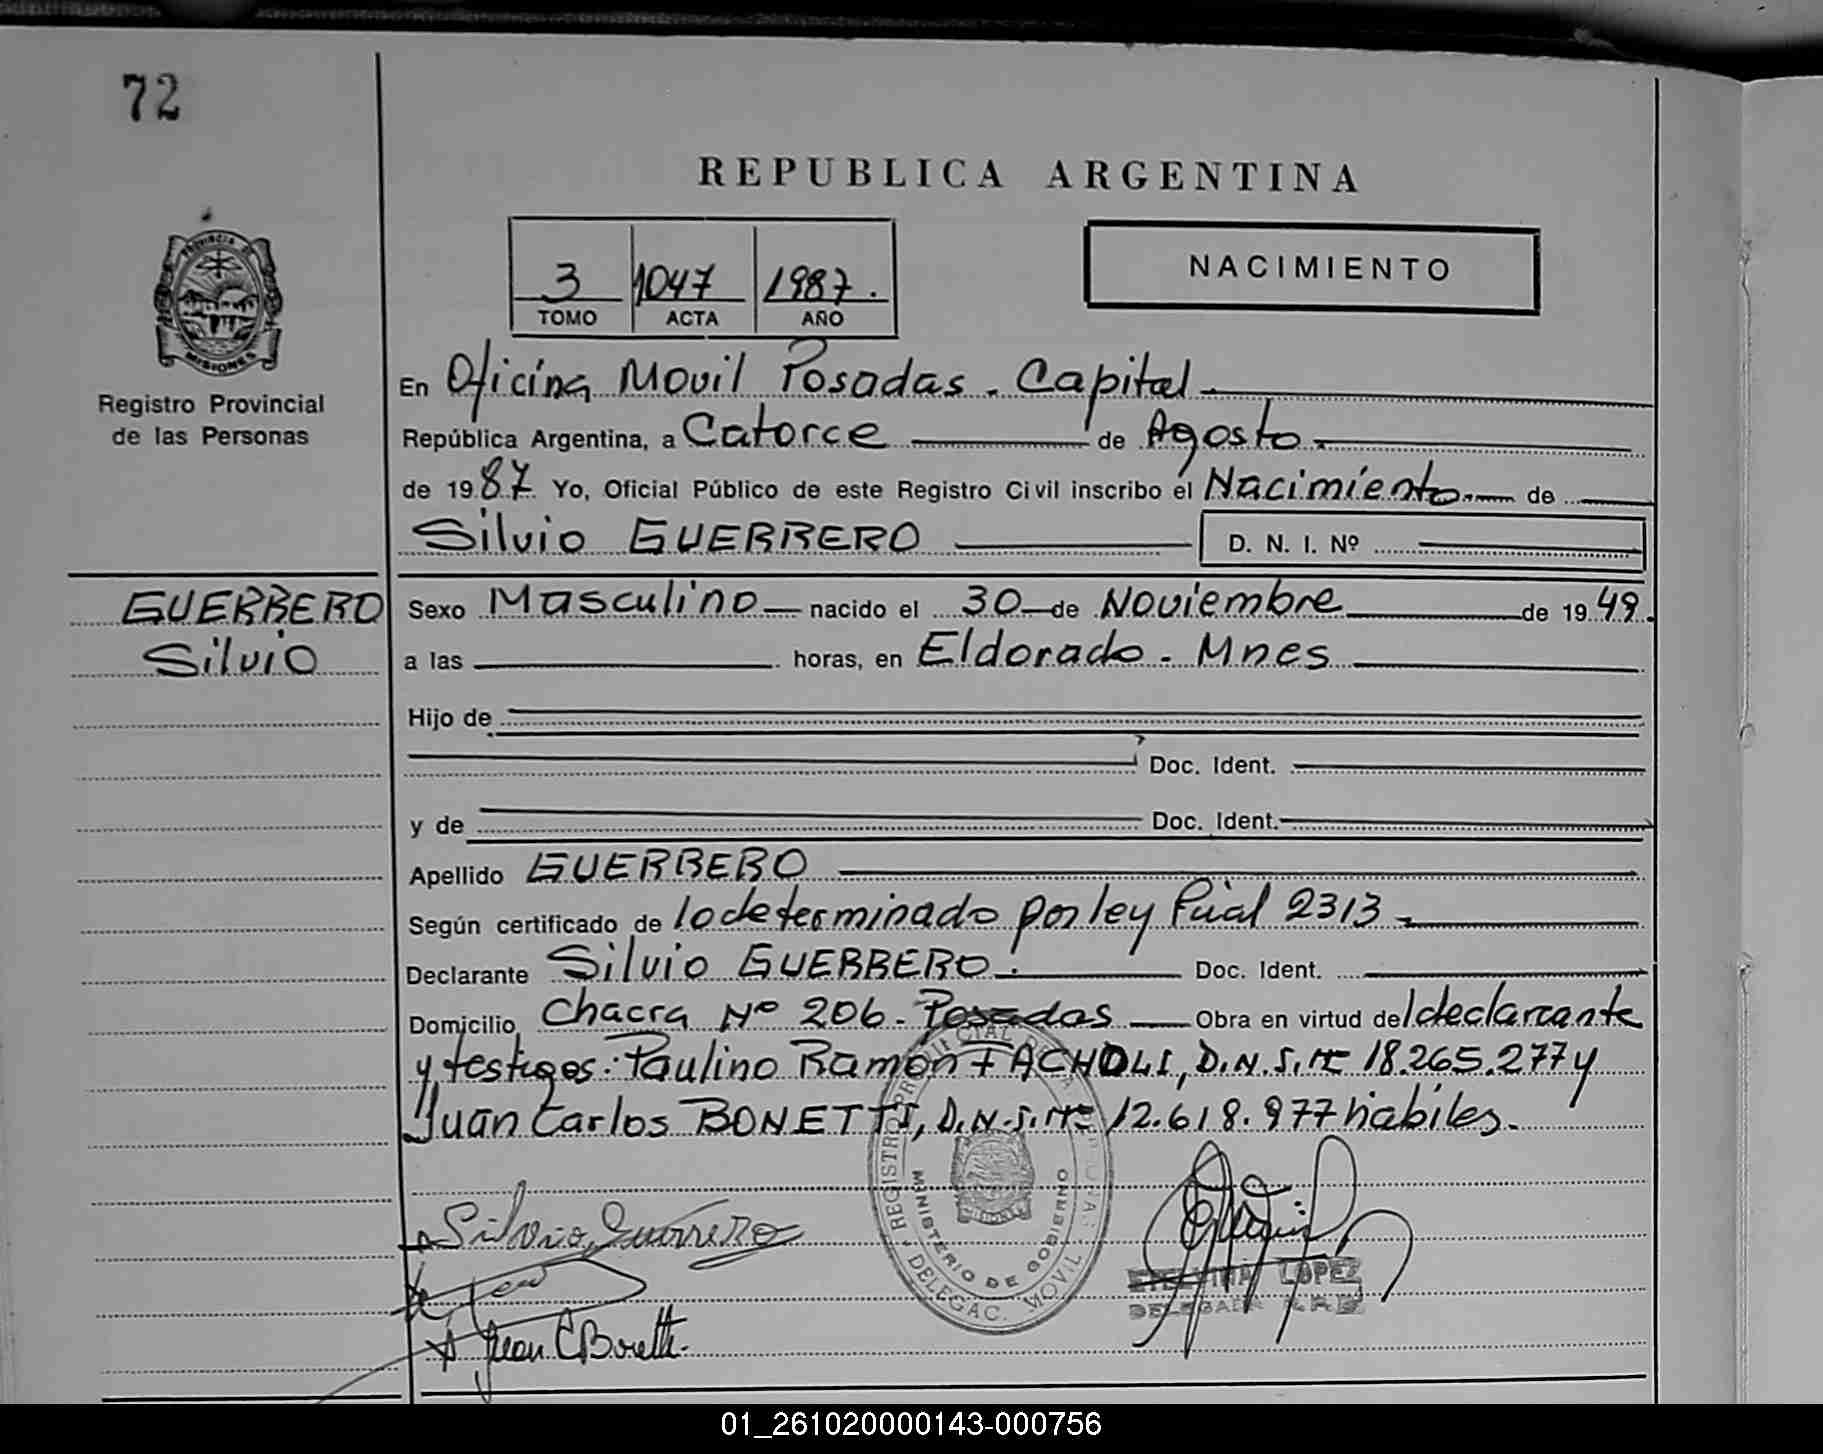 72
REPUBLICA ARGENTINA
3 1047 1987.
TOMO ACTA AÑO
NACIMIENTO
PROVINCIA DE
MISIONES
Registro Provincial
de las Personas
En Oficina Movil Posadas. Capital
República Argentina, a Catorce de Agosto
de 1987 Yo, Oficial Público de este Registro Civil inscribo el Nacimiento de
Silvio GUERRERO D. N. I. Nº
GUERRERO
Silvio
Sexo Masculino nacido el 30 de Noviembre de 1949.
a las horas, en Eldorado. Mnes
Hijo de
Doc. Ident.
y de Doc. Ident.
Apellido GUERRERO
Según certificado de lo determinado por ley Pcial 2313
Declarante Silvio GUERRERO. Doc. Ident.
Domicilio Chacra Nº 206. Posadas Obra en virtud del declarante
y testigos: Paulino Ramón FACHOLI, D.N.I. Nº 18.265.277 y
Juan Carlos BONETTI, D.N.I. Nº 12.618.977 hábiles.
REGISTRO PROVINCIAL DE LAS PERSONAS
MINISTERIO DE GOBIERNO
DELEGAC. MOVIL
Silvio Guerrero
ETELVINA LOPEZ
DELEGADA
Juan C Bonetti
01_261020000143-000756